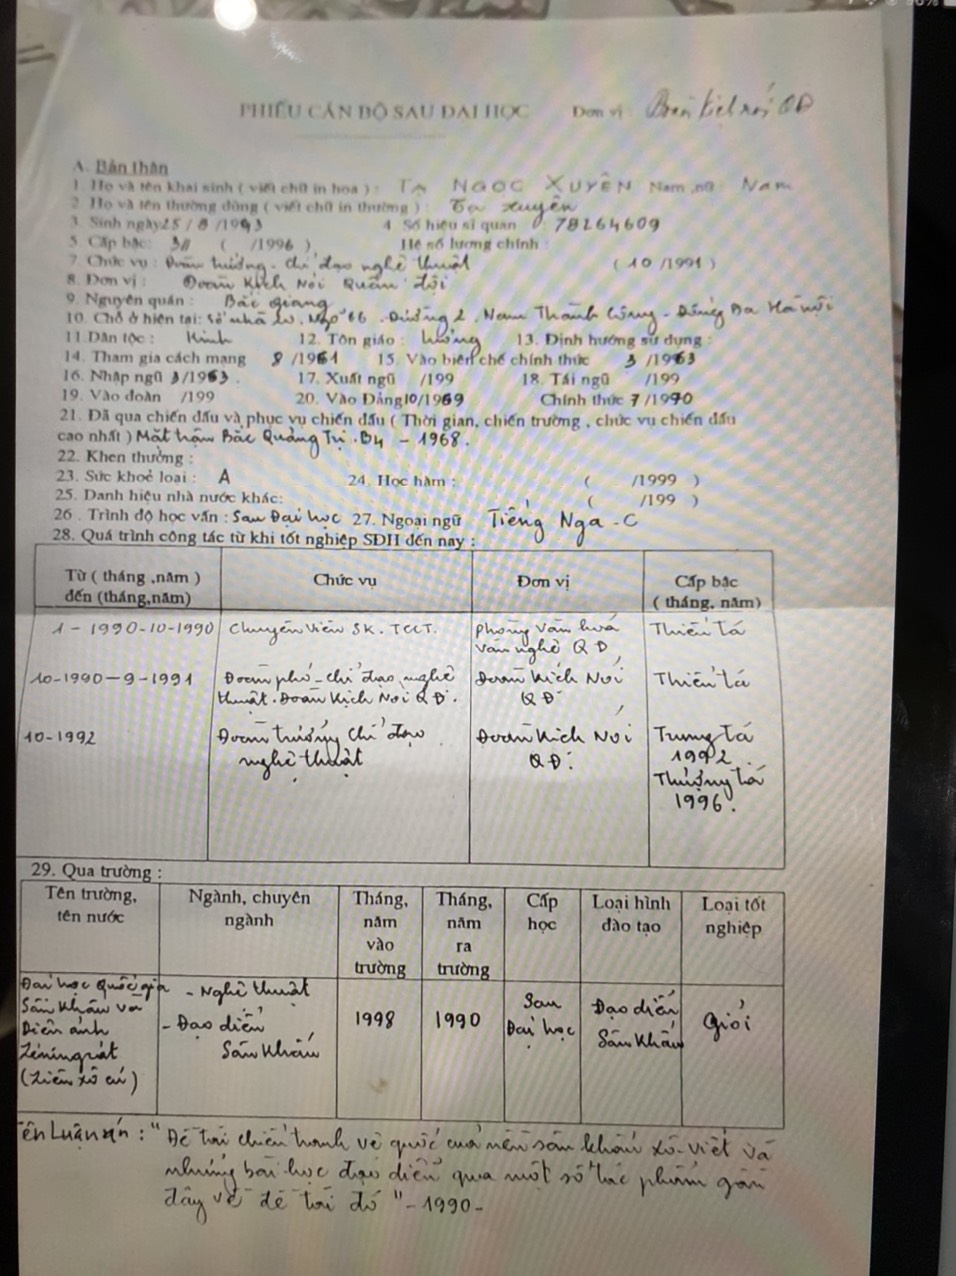 96%
PHIẾU CÁN BỘ SAU ĐẠI HỌC Đơn vị : Đoàn kịch nói QĐ
A. Bản thân
1. Họ và tên khai sinh ( viết chữ in hoa ) : TẠ NGỌC XUYÊN Nam ,nữ : Nam
2. Họ và tên thường dùng ( viết chữ in thường ) : Tạ Xuyên
3. Sinh ngày 25 / 8 /1943 4. Số hiệu sĩ quan 78264609
5. Cấp bậc: 3// ( /1996 ) Hệ số lương chính :
7. Chức vụ : Đoàn trưởng - chỉ đạo nghệ thuật ( 10 /1991 )
8. Đơn vị : Đoàn Kịch Nói Quân đội
9. Nguyên quán : Bắc giang
10. Chỗ ở hiện tại: Số nhà 20. Ngõ 66 . Đường 2. Nam Thành Công - Đống Đa Hà nội
11.Dân tộc : Kinh 12. Tôn giáo : không 13. Định hướng sử dụng :
14. Tham gia cách mạng 8 /1961 15. Vào biên chế chính thức 3 /1963
16. Nhập ngũ 3/1963 . 17. Xuất ngũ /199 18. Tái ngũ /199
19. Vào đoàn /199 20. Vào Đảng10/1969 Chính thức 7 /1970
21. Đã qua chiến đấu và phục vụ chiến đấu ( Thời gian, chiến trường , chức vụ chiến đấu
cao nhất ) Mặt trận Bắc Quảng Trị . B4 - 1968.
22. Khen thưởng :
23. Sức khoẻ loại : A 24. Học hàm : ( /1999 )
25. Danh hiệu nhà nước khác: ( /199 )
26 . Trình độ học vấn : Sau Đại học 27. Ngoại ngữ Tiếng Nga - C
28. Quá trình công tác từ khi tốt nghiệp SĐH đến nay :
Từ ( tháng ,năm ) đến (tháng,năm) Chức vụ Đơn vị Cấp bậc ( tháng, năm)
1 - 1990-10-1990 Chuyên viên SK. TCCT. Phòng Văn hoá
Văn nghệ QĐ, Thiếu tá
10-1990-9-1991 Đoàn phó - chỉ đạo nghệ
thuật. Đoàn Kịch Nói QĐ. Đoàn Kịch Nói
QĐ Thiếu tá
10-1992 Đoàn trưởng chỉ đạo
nghệ thuật Đoàn Kịch Nói
QĐ. Trung tá
1992.
Thượng tá
1996.
29. Qua trường :
Tên trường,
tên nước
Ngành, chuyên
ngành
Tháng,
năm
vào
trường
Tháng,
năm
ra
trường
Cấp
học
Loại hình
đào tạo
Loại tốt
nghiệp
Đại học Quốc gia
Sân Khấu và
Điện ảnh
Lêningrát
(Liên Xô cũ)
- Nghệ thuật
- Đạo diễn
Sân Khấu
1998
1990
Sau
Đại học
Đạo diễn
Sân Khấu
Giỏi
Tên Luận án : "Đề tài chiến tranh vệ quốc của nền sân khấu Xô-viết và
những bài học đạo diễn qua một số tác phẩm gần
đây về đề tài đó" -1990-